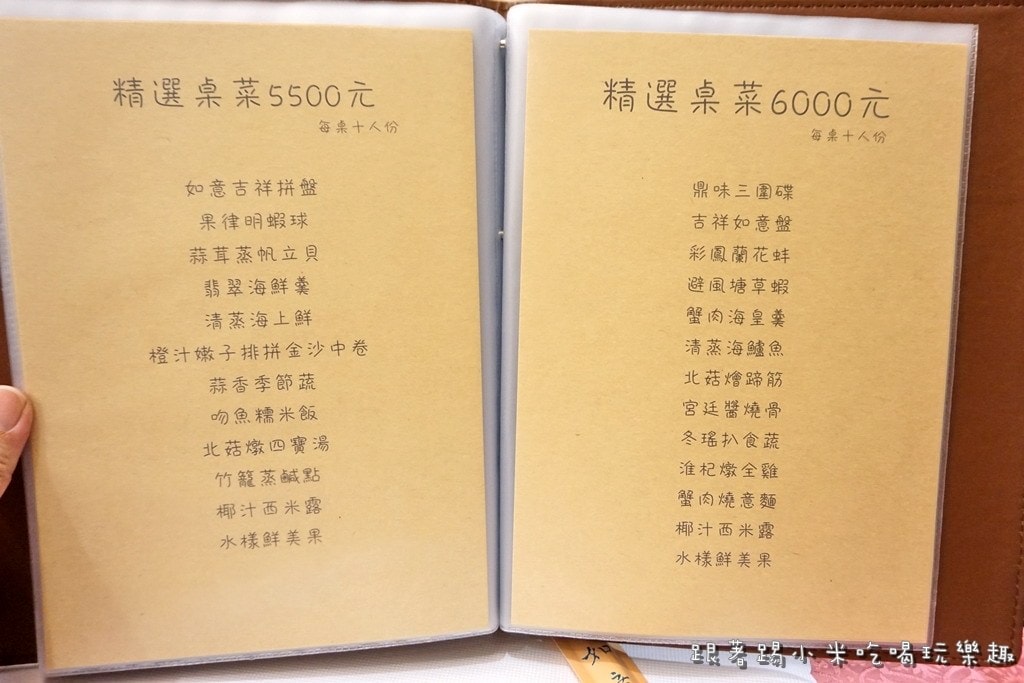 精選桌菜5500元
每桌十人份
如意吉祥拼盤
果律明蝦球
蒜茸蒸帆立貝
翡翠海鮮羹
清蒸海上鮮
橙汁嫩子排拼金沙中卷
蒜香季節蔬
吻魚糯米飯
北菇燉四寶湯
竹籠蒸鹹點
椰汁西米露
水樣鮮美果
精選桌菜6000元
每桌十人份
鼎味三圍碟
吉祥如意盤
彩鳳蘭花蚌
避風塘草蝦
蟹肉海皇羹
清蒸海鱸魚
北菇燴蹄筋
宮廷醬燒骨
冬瑤扒食蔬
淮杞燉全雞
蟹肉燒意麵
椰汁西米露
水樣鮮美果
跟著踢小米吃喝玩樂趣